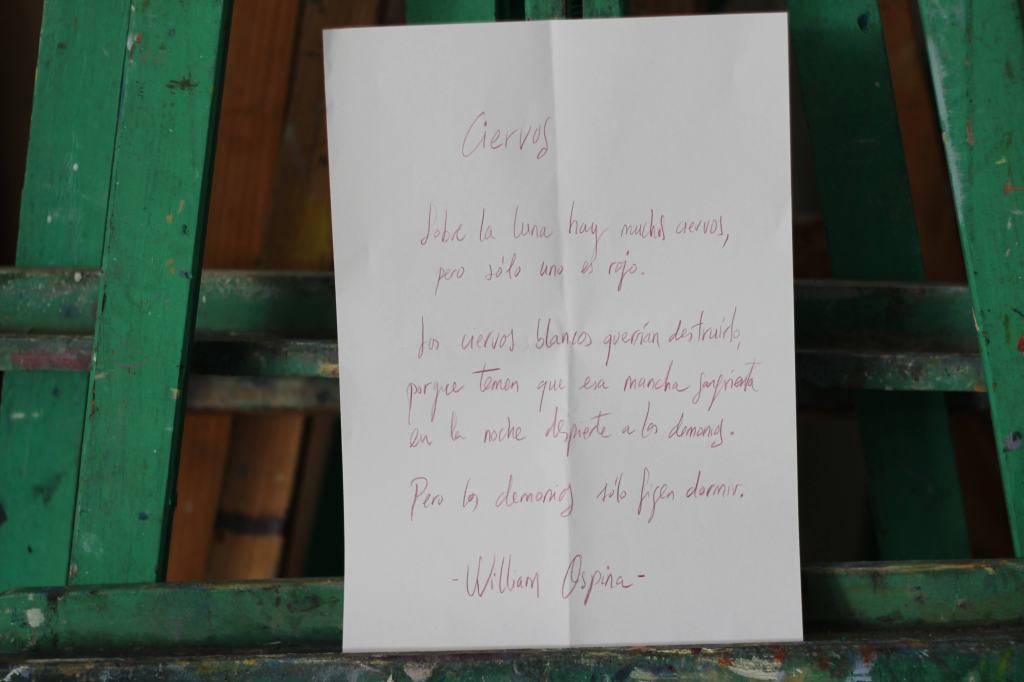 Ciervos
Sobre la luna hay muchos ciervos,
pero sólo uno es rojo.
Los ciervos blancos querrían destruirlo,
porque temen que esa mancha sangrienta
en la noche despierte a los demonios.
Pero los demonios sólo fingen dormir.
-William Ospina-